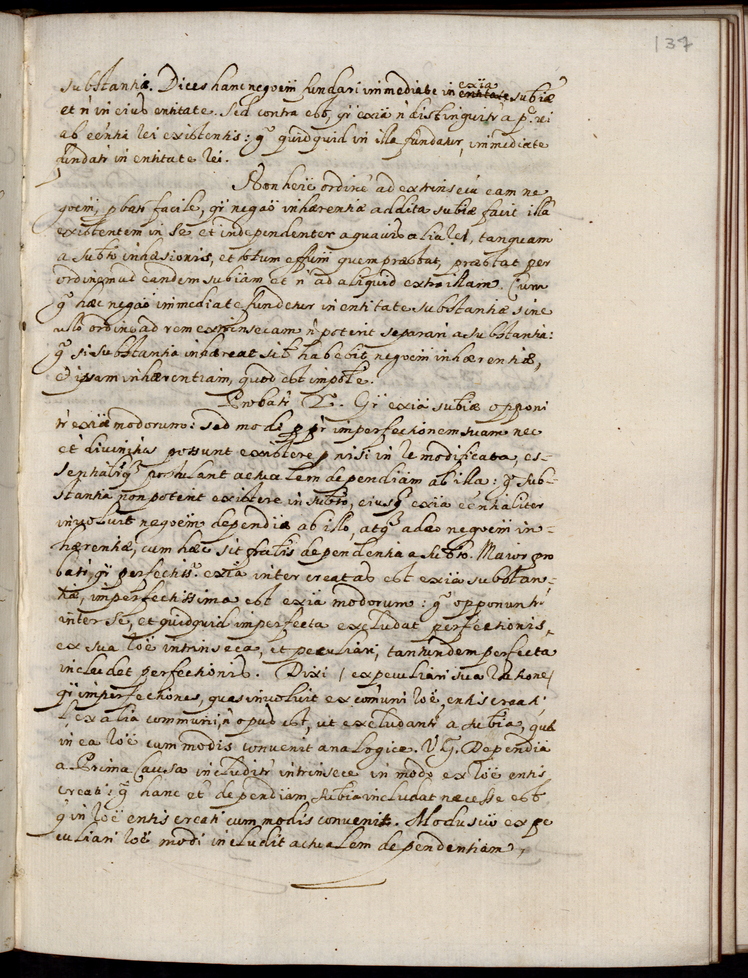 137
substantiæ. Dices hanc negoem fundari immediate in exīia entitate subiæ
et n̄ in eius entitate. Sed contra est, qȓ exīia n̄ distinguitr a pe rei
ab eentia rei existentis: g° quidquid in illa fundatur, immediate
fundatr in entitate rei.
Non heri ordinē ad extrinsecū eam ne
goem, pbatr facile, qȓ negao inhærentiæ addita subiæ facit illā
existentem in se et independenter a quavis alia re, tanquam
a subto inhæsionis, et totum effum quem præstat, præstat per
ordinem ad eandem subiam et n̄ ad aliquid extra illam. Cum
g° hæc negao immediate fundetur in entitate substantiæ sine
ullo ordine ad rem extrinsecam n̄ poterit separari a substantia:
g° si substantia inhæreat sit habebit negoem inhærentiæ,
et ipsam inhærentiam, quod est impōle.
Probatr 2°. Qȓ exīia subiæ opponi
tr exīiæ modorum: sed modi ppr imperfectionem suam nec
et divinitus possunt existere nisi in re modificata, es-
sentialitrq̄ postulant actualem dependiam ab illa: g° sub-
stantia non poterit existere in subto, eiusq̄ exīia eentialiter
involuit negoem dependiæ ab illo, atq̄ adeo negoem in-
hærentiæ, cum hæc sit fralis dependentia a subto. Maior pro
batr, qȓ perfectissa exīia inter creatas est exīia substan-
tiæ, imperfectissima est exīia modorum: g° opponuntr
inter se, et quidquid imperfecta excludat perfectionis,
ex sua roē intrinseca, et peculiari, tantundem perfecta
includet perfectionis. Dixi (ex peculiari sua ratione)
qȓ imperfectiones, quas involuit ex comuni roē entis creati
l ex alia communi, n̄ opus est, ut excludantr a subia, quæ
in ea roē cum modis convenit analogice. V.G. Dependia
a Prima Causa includitr intrinsece in modo ex roē entis
creati: g° hanc et dependiam subia includat necesse est
q̄ in roē entis creati cum modis convenit. Modus ex pe
culiari roē modi includit actualem dependentiam,